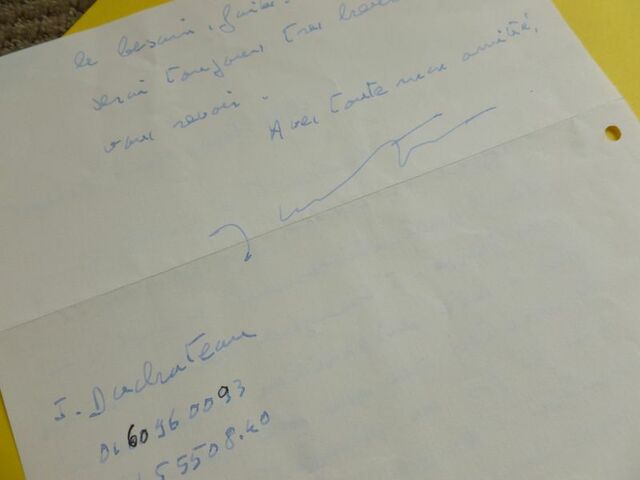 le besoin, faites
serai toujours très heureux
vous revoir.
Avec toute mon amitié,
J. Duchateau
01 60 96 00 93
5 55 08.40